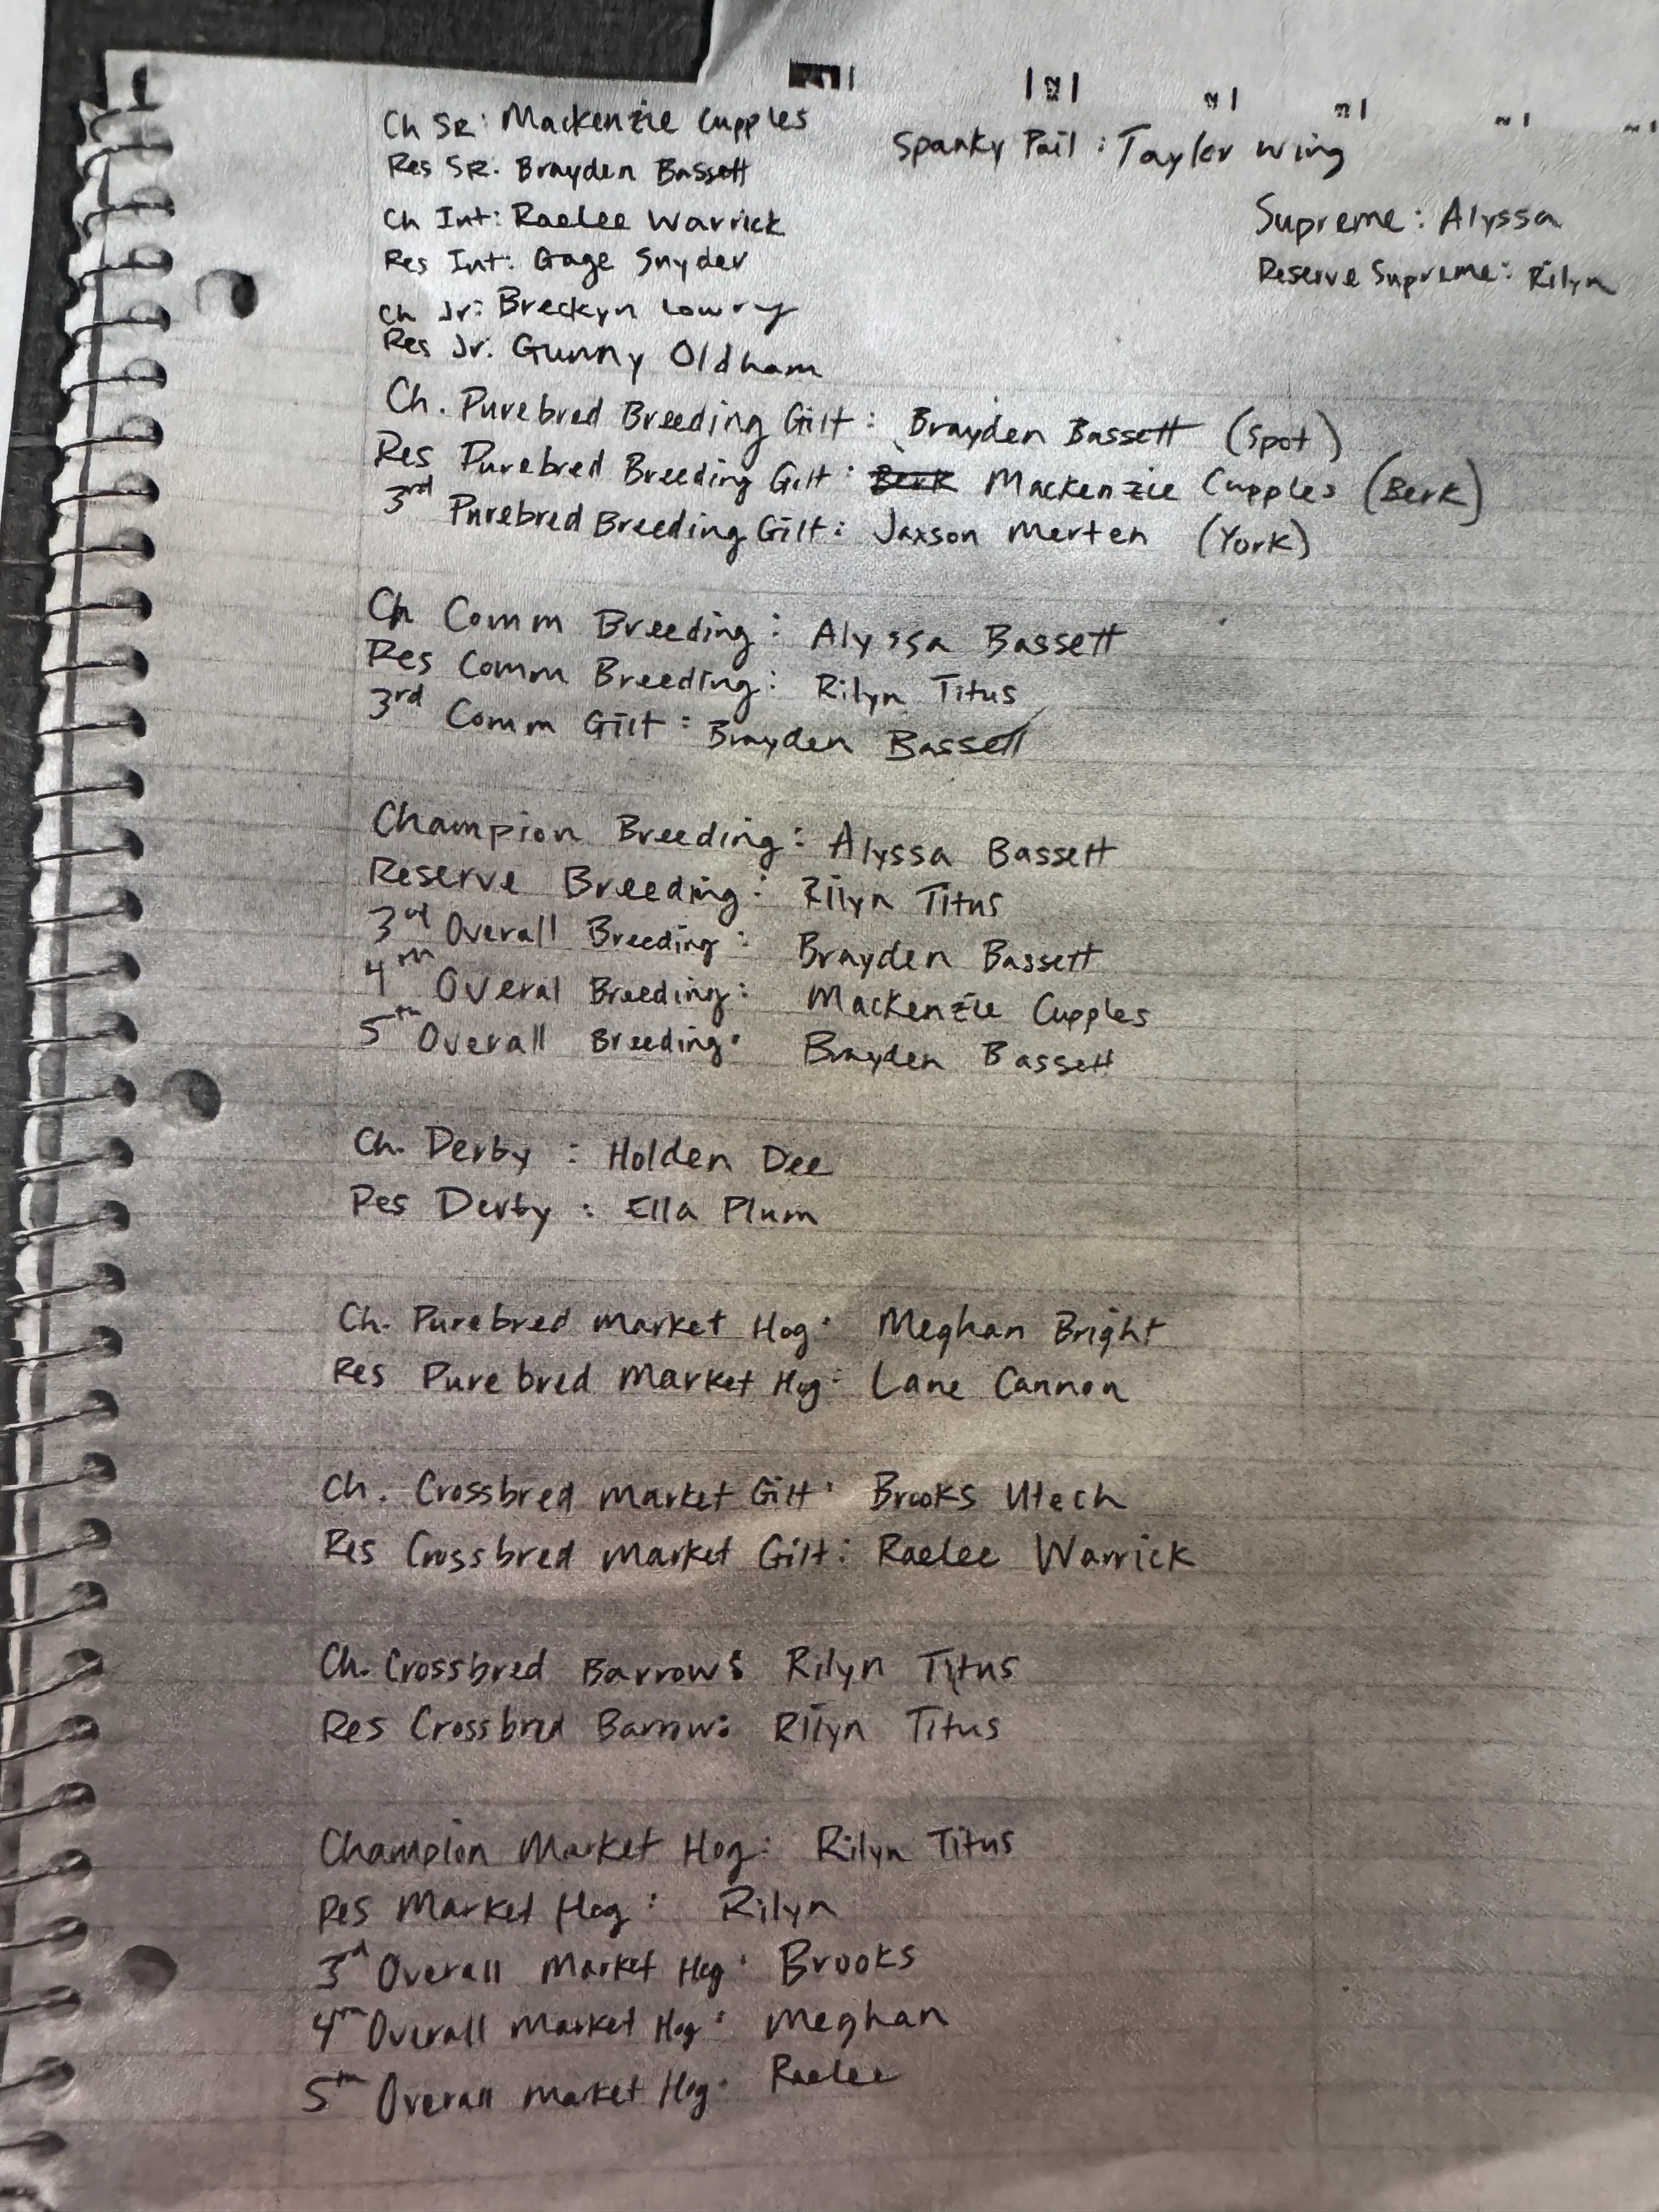 Ch SR: Mackenzie Cupples
Spanky Pail : Taylor Wing
Res SR. Brayden Bassett
Supreme: Alyssa
Ch Int: Raelee Warrick
Res Int: Gage Snyder
Reserve Supreme: Rilyn
Ch Jr: Breckyn Lowry
Res Jr. Gunny Oldham
Ch. Purebred Breeding Gilt: Brayden Bassett (Spot)
Res Purebred Breeding Gilt: Berk Mackenzie Cupples (Berk)
3rd Purebred Breeding Gilt: Jaxson Merten (York)
Ch Comm Breeding: Alyssa Bassett
Res Comm Breeding: Rilyn Titus
3rd Comm Gilt: Brayden Bassett
Champion Breeding: Alyssa Bassett
Reserve Breeding: Rilyn Titus
3rd Overall Breeding: Brayden Bassett
4th Overal Breeding: Mackenzie Cupples
5th Overall Breeding: Brayden Bassett
Ch. Derby : Holden Dee
Res Derby : Ella Plum
Ch. Purebred Market Hog: Meghan Bright
Res Purebred Market Hog: Lane Cannon
Ch. Crossbred Market Gilt: Brooks Utech
Res Crossbred Market Gilt: Raelee Warrick
Ch. Crossbred Barrow: Rilyn Titus
Res Crossbred Barrow: Rilyn Titus
Champion Market Hog: Rilyn Titus
Res Market Hog: Rilyn
3rd Overall Market Hog: Brooks
4th Overall Market Hog: Meghan
5th Overall Market Hog: Raelee